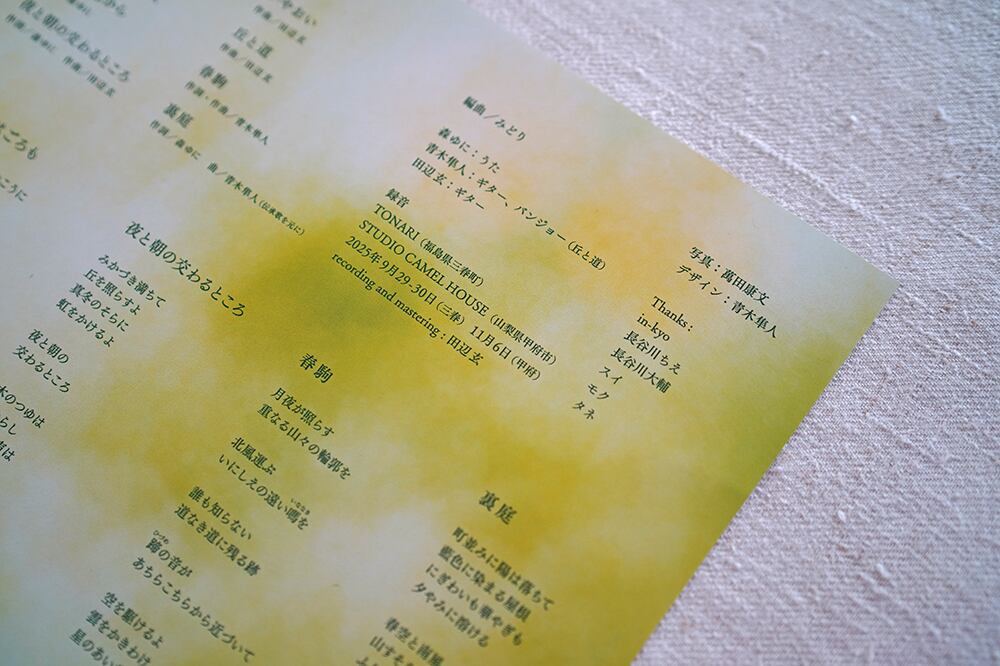 夜と朝の交わるところ
作曲／田辺玄
丘と道
作曲／田辺玄
春駒
作詞・作曲／青木隼人
裏庭
作詞／森ゆに 曲／青木隼人（伝承歌を元に）
夜と朝の交わるところ
みかづき満ちて
丘を照らすよ
真冬のそらに
虹をかけるよ
夜と朝の
交わるところ
春駒
月夜が照らす
重なる山々の輪郭を
北風運ぶ
いにしえの遠い嘶を
いななき
誰も知らない
道なき道に残る跡
ひづめ
蹄の音が
あちらこちらから近づいて
空を駆けるよ
雲をかきわけ
星のあい
編曲／みどり
森ゆに：うた
青木隼人：ギター、バンジョー（丘と道）
田辺玄：ギター
録音
TONARI（福島県三春町）
STUDIO CAMEL HOUSE（山梨県甲府市）
2025年9月29-30日（三春） 11月6日（甲府）
recording and mastering : 田辺玄
裏庭
町並みに陽は落ちて
藍色に染まる屋根
にぎわいも華やぎも
夕やみに溶ける
春空と南風
写真：萬田康文
デザイン：青木隼人
Thanks :
in-kyo
長谷川ちえ
長谷川大輔
スイ
モク
タネ